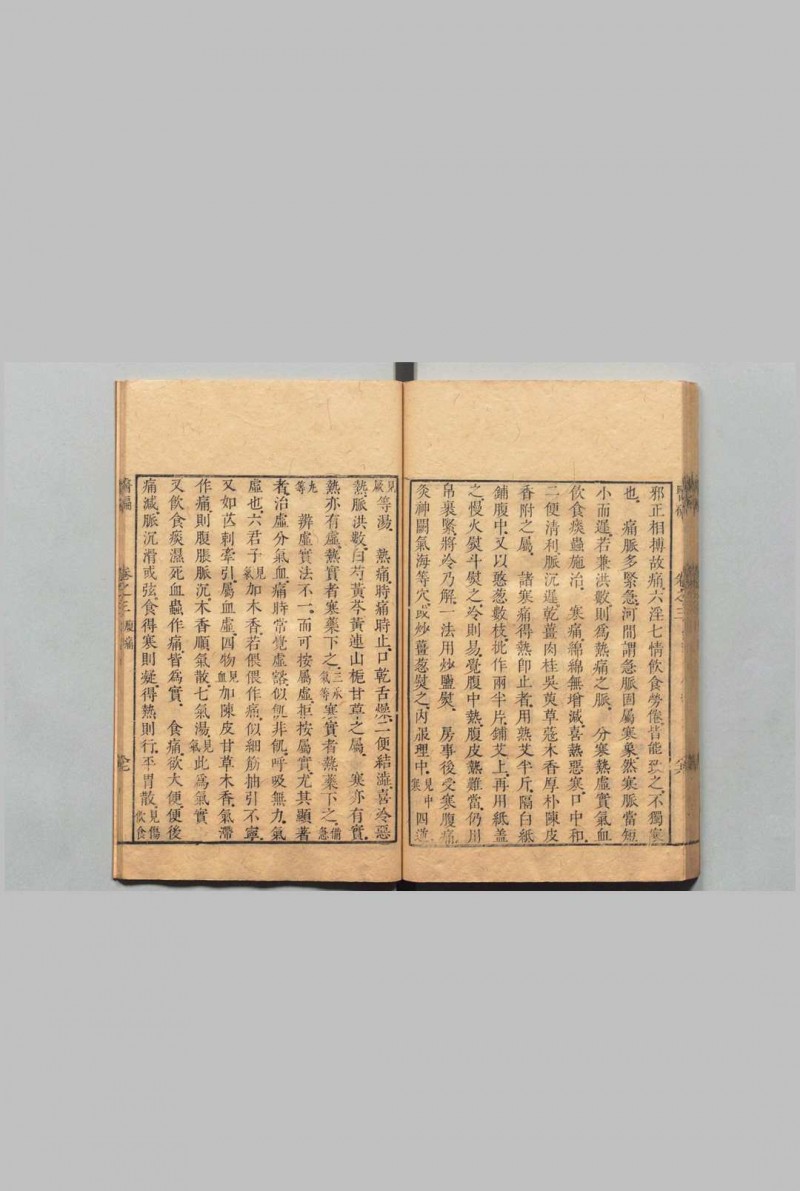 邪正相搏故痛六淫七情飲食勞倦皆能致之不獨寒
也　痛脈多緊急河間謂急脈固屬寒象然寒脈當短
小而遲若兼洪數則爲熱痛之脈　分寒熱虛實氣血
飲食痰蟲施治　寒痛綿綿無增減喜熱惡寒口中和
二便清利脈沉遲乾薑肉桂吳茰草蔻木香厚朴陳皮
香附之屬　諸寒痛得熱即止者用熟艾半斤隔白紙
鋪腹中又以葱數枝批作兩半片鋪艾上再用紙蓋
之慢火熨斗熨之冷則易覺腹中熱腹皮熱難當仍用
帛裹緊將冷乃解一法用炒鹽熨　房事後受寒腹痛
灸神闕氣海等穴或炒薑葱熨之內服理中見中寒四逆
見厥等湯　熱痛時痛時止口乾舌燥二便結澁喜冷惡
熱脈洪數白芍黃芩黃連山梔甘草之屬　寒亦有實
熱亦有虛熱實者寒藥下之三承氣等寒實者熱藥下之備急
丸等　辨虛實法不一而可按屬虛拒按屬實尤其顯著
者治虛分氣血痛時常覺虛豁似飢非飢呼吸無力氣
虛也六君子見氣加木香若偎偎作痛似細筋抽引不寧
又如芒刺牽引屬血虛四物見血加陳皮甘草木香氣滯
作痛則腹脹脈沉木香順氣散七氣湯見氣此爲氣實
又飲食痰濕死血蟲作痛皆爲實　食痛欲大便便後
痛減脈沉滑或弦食得寒則凝得熱則行平胃散見傷飲食
卷之三　腹痛